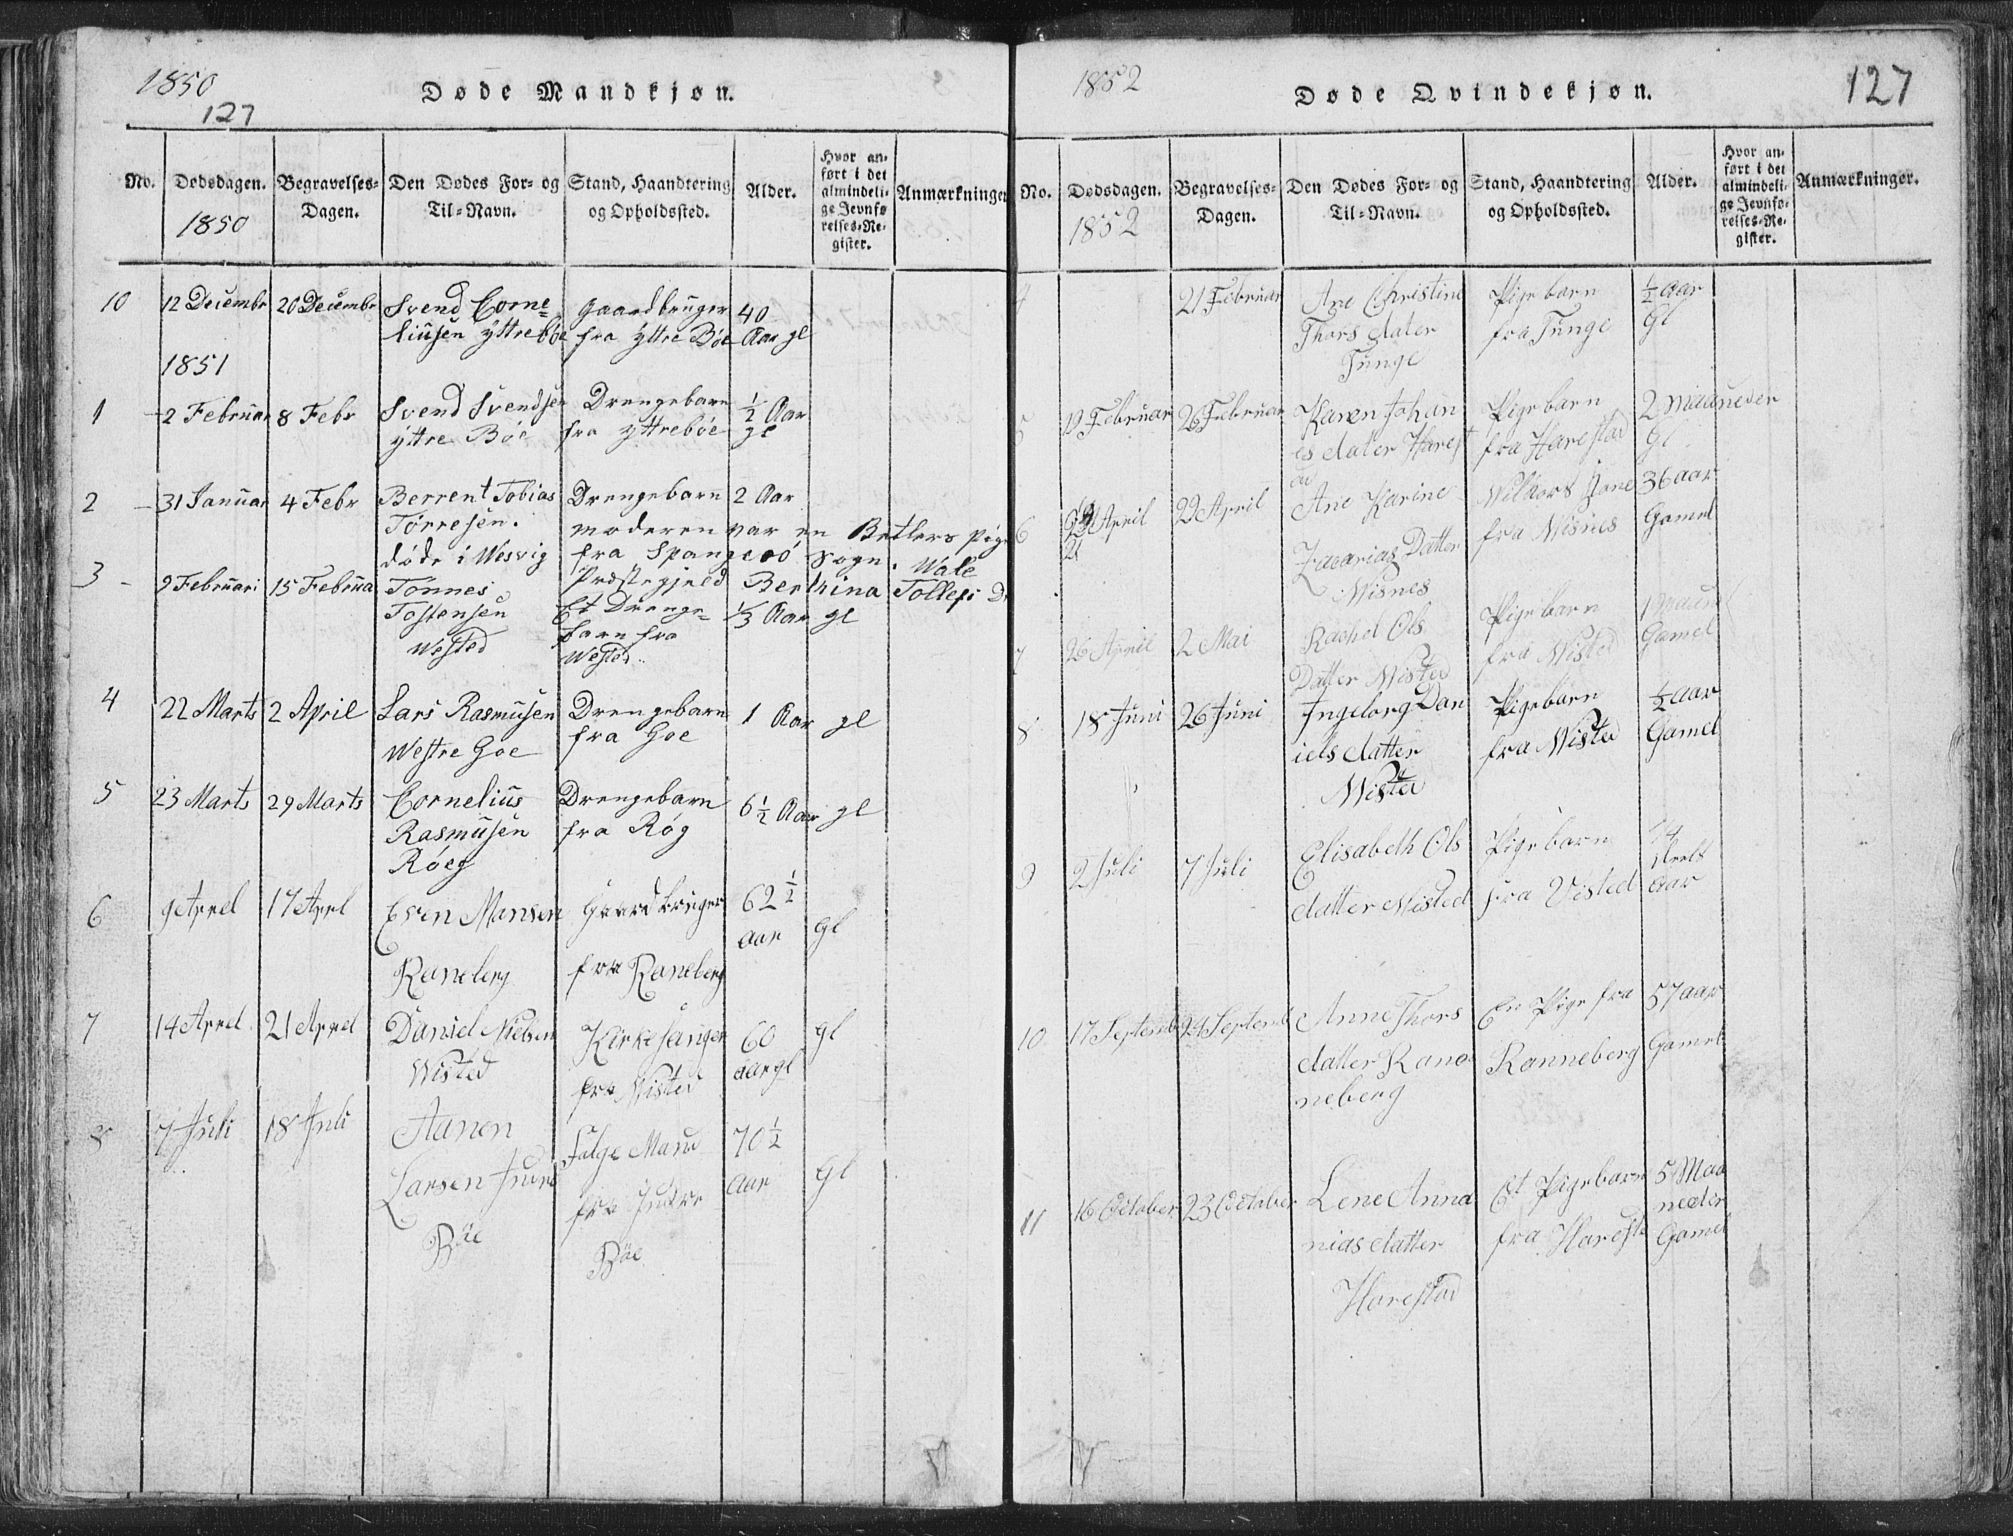 1850
127
Døde Mandkjøn.
No.
Dødsdagen.
1850
Begravelses-
Dagen.
Den Dødes For- og
Til-Navn.
Stand, Haandtering
og Opholdssted.
Alder.
Hvor an-
ført i det
almindeli-
ge Jevnfø-
relses-Re-
gister.
Anmærkninger
10 12 Decembr 20 Decembr Svend Corne= Gaardbruger 40
liusen Yttrebøe fra Yttre Bøe Aar gl
1851
1 2 Februar 8 Febr Svend Svendsen Drengebarn ½ Aar
Yttre Bøe fra Yttrebøe gl
2 31 Januar 4 Febr Berrent Tobias Drengebarn 2 Aar
Tørresen. moderen var en Betlers pige
døde i Wesvig fra Spangerø Sogn. Wale
Præstegjeld Berthina Tollefs D
3 9 Februari 15 Februa Tønnes Et Drenge= ⅓ Aar gl
Tostensen barn fra
Wested Wested
4 22 Marts 2 April Lars Rasmusen Drengebarn 1 Aar gl
Westre Goe fra Goe
5 23 Marts 29 Marts Cornelius Drengebarn 6½ Aar gl
Rasmusen fra Røg
Røeg
6 9 Aprel 17 Aprl Even Hansen Gaardbruger 62½
Aar gl
Raneberg fra Raneberg
7 14 Aprel 21 Aprel Daniel Nielsen Kirkesanger 60 gl
Wisted fra Wisted aar gl
8 7 Juli 18 Juli Aanen Følge Mand 70½
Larsen Indre fra Indre Aar gl
Bøe Bøe
1852
Døde Qvindekjøn.
127
No.
Dødsdagen.
1852
Begravelses-
Dagen.
Den Dødes For- og
Til-Navn.
Stand, Haandtering
og Opholdssted.
Alder.
Hvor an-
ført i det
almindeli-
ge Jevnfø-
relses-Re-
gister.
Anmærkninger.
4 21 Februar Ane Christine Pigebarn ½ Aar
Thors dater fra Tunge Gl
Tunge
5 19 Februar 26 Februar Karen Johan Pigebarn 2 Maaneder
es dater Harest fra Harestad Gl
ad
6 April 29 April Ane Karine Wilkors Kone 36 aar
21 Zacarias Datter fra Wisnes Gamel
Wisnes
7 26 April 2 Mai Rachel Ols Pigebarn 1 Maan
Datter Wisted fra Wisted Gamel
8 18 Juni 26 Juni Ingeborg Dan Pigebarn ½ aar
iels datter fra Wisted Gamel
Wisted
9 2 Juli 7 Juli Elisabeth Ols Pigebarn 1/4
datter Wisted fra Visted aar
10 17 Septemb 24 Septemb Anne Thors En Pige fra 57 aar
datter Ran Ranneberg Gamel
neberg
11 16 October 23 October Lene Anna Et Pigebarn 5 Maa
nias datter fra Harestd neder
Harestad Gamel